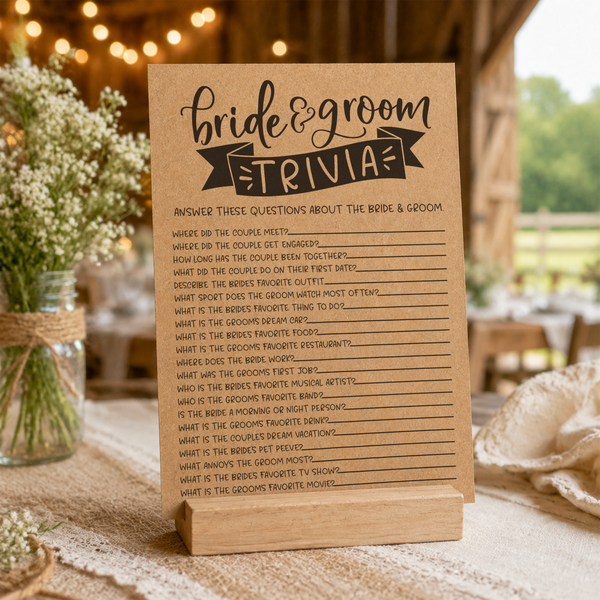 bride & groom
TRIVIA
ANSWER THESE QUESTIONS ABOUT THE BRIDE & GROOM.
WHERE DID THE COUPLE MEET?
WHERE DID THE COUPLE GET ENGAGED?
HOW LONG HAS THE COUPLE BEEN TOGETHER?
WHAT DID THE COUPLE DO ON THEIR FIRST DATE?
DESCRIBE THE BRIDES FAVORITE OUTFIT
WHAT SPORT DOES THE GROOM WATCH MOST OFTEN?
WHAT IS THE BRIDES FAVORITE THING TO DO?
WHAT IS THE GROOMS DREAM CAR?
WHAT IS THE BRIDES FAVORITE FOOD?
WHAT IS THE GROOMS FAVORITE RESTAURANT?
WHERE DOES THE BRIDE WORK?
WHAT WAS THE GROOMS FIRST JOB?
WHO IS THE BRIDES FAVORITE MUSICAL ARTIST?
WHO IS THE GROOMS FAVORITE BAND?
IS THE BRIDE A MORNING OR NIGHT PERSON?
WHAT IS THE GROOMS FAVORITE DRINK?
WHAT IS THE COUPLES DREAM VACATION?
WHAT IS THE BRIDES PET PEEVE?
WHAT ANNOYS THE GROOM MOST?
WHAT IS THE BRIDES FAVORITE TV SHOW?
WHAT IS THE GROOMS FAVORITE MOVIE?